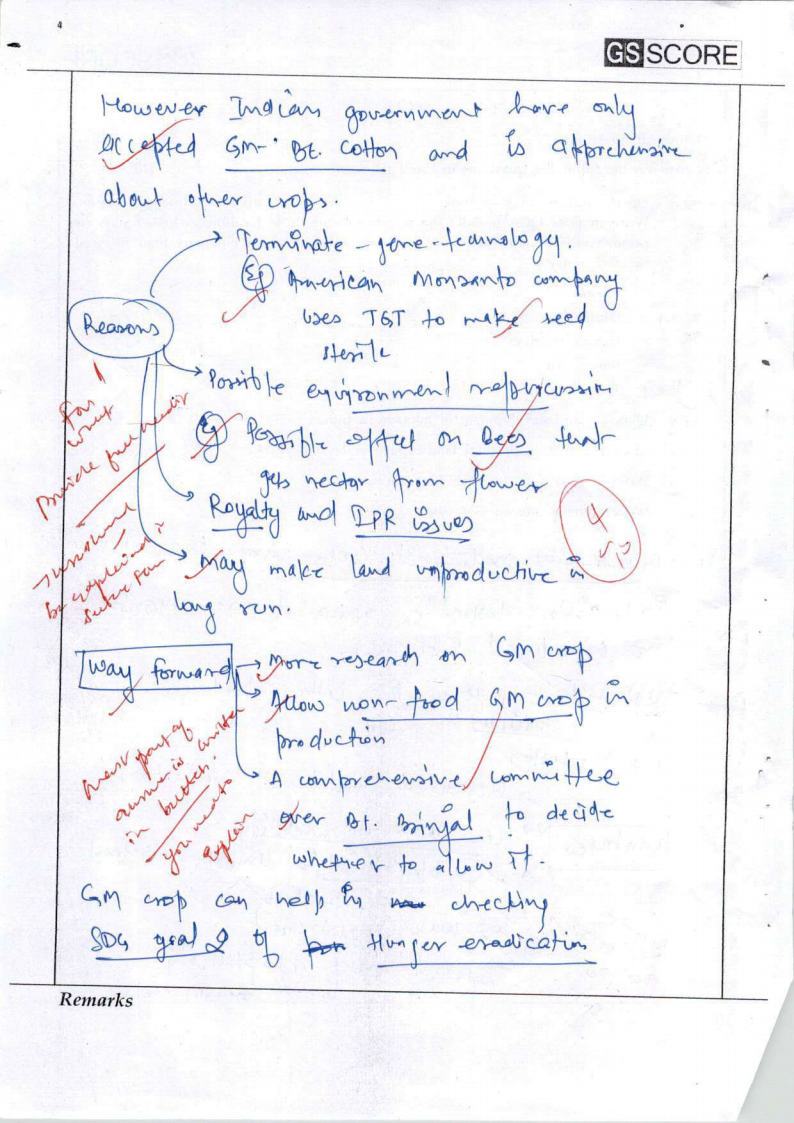 4
GS SCORE
However Indian government have only
accepted GM-Bt. Cotton and is apprehensive
about other crops.
Terminate-gene-technology.
Eg American Monsanto company
uses TGT to make seed
sterile
Reasons
Possible environment repurcussion
Eg Possible effect on Bees that
gets nectar from flower
Royalty and IPR issues
may make land unproductive in
long run.
For
what
Provide
be explained in
4
Way forward
More research on GM crop
Allow non-food GM crop in
production
A comprehensive committee
over Bt. Brinjal to decide
whether to allow it.
most part of
answer is written
in bullets.
you need to
explain
GM crop can help in checking
SDG goal 2 of Hunger eradication
Remarks